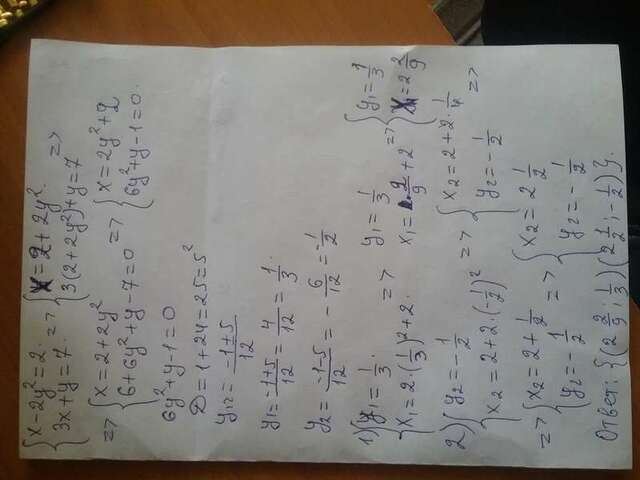 {x-2y²=2. => {x=2+2y². =>
{3x+y=7. {3(2+2y²)+y=7
=> {x=2+2y² => {x=2y²+2
{6+6y²+y-7=0 {6y²+y-1=0.
6y²+y-1=0
D=1+24=25=5²
y₁₂= -1±5/12
y₁= -1+5/12 = 4/12 = 1/3
y₂= -1-5/12 = -6/12 = -1/2
1) {y₁=1/3. => y₁=1/3 => {y₁=1/3
{x₁=2·(1/3)²+2. x₁=2/9+2 {x₁=2 2/9
2) {y₂=-1/2 => {x₂=2+2·1/4 =>
{x₂=2+2·(1/2)² {y₂=-1/2
=> {x₂=2+1/2 => {x₂=2 1/2
{y₂=-1/2 {y₂=-1/2
Ответ: {(2 2/9; 1/3)(2 1/2; -1/2)}.